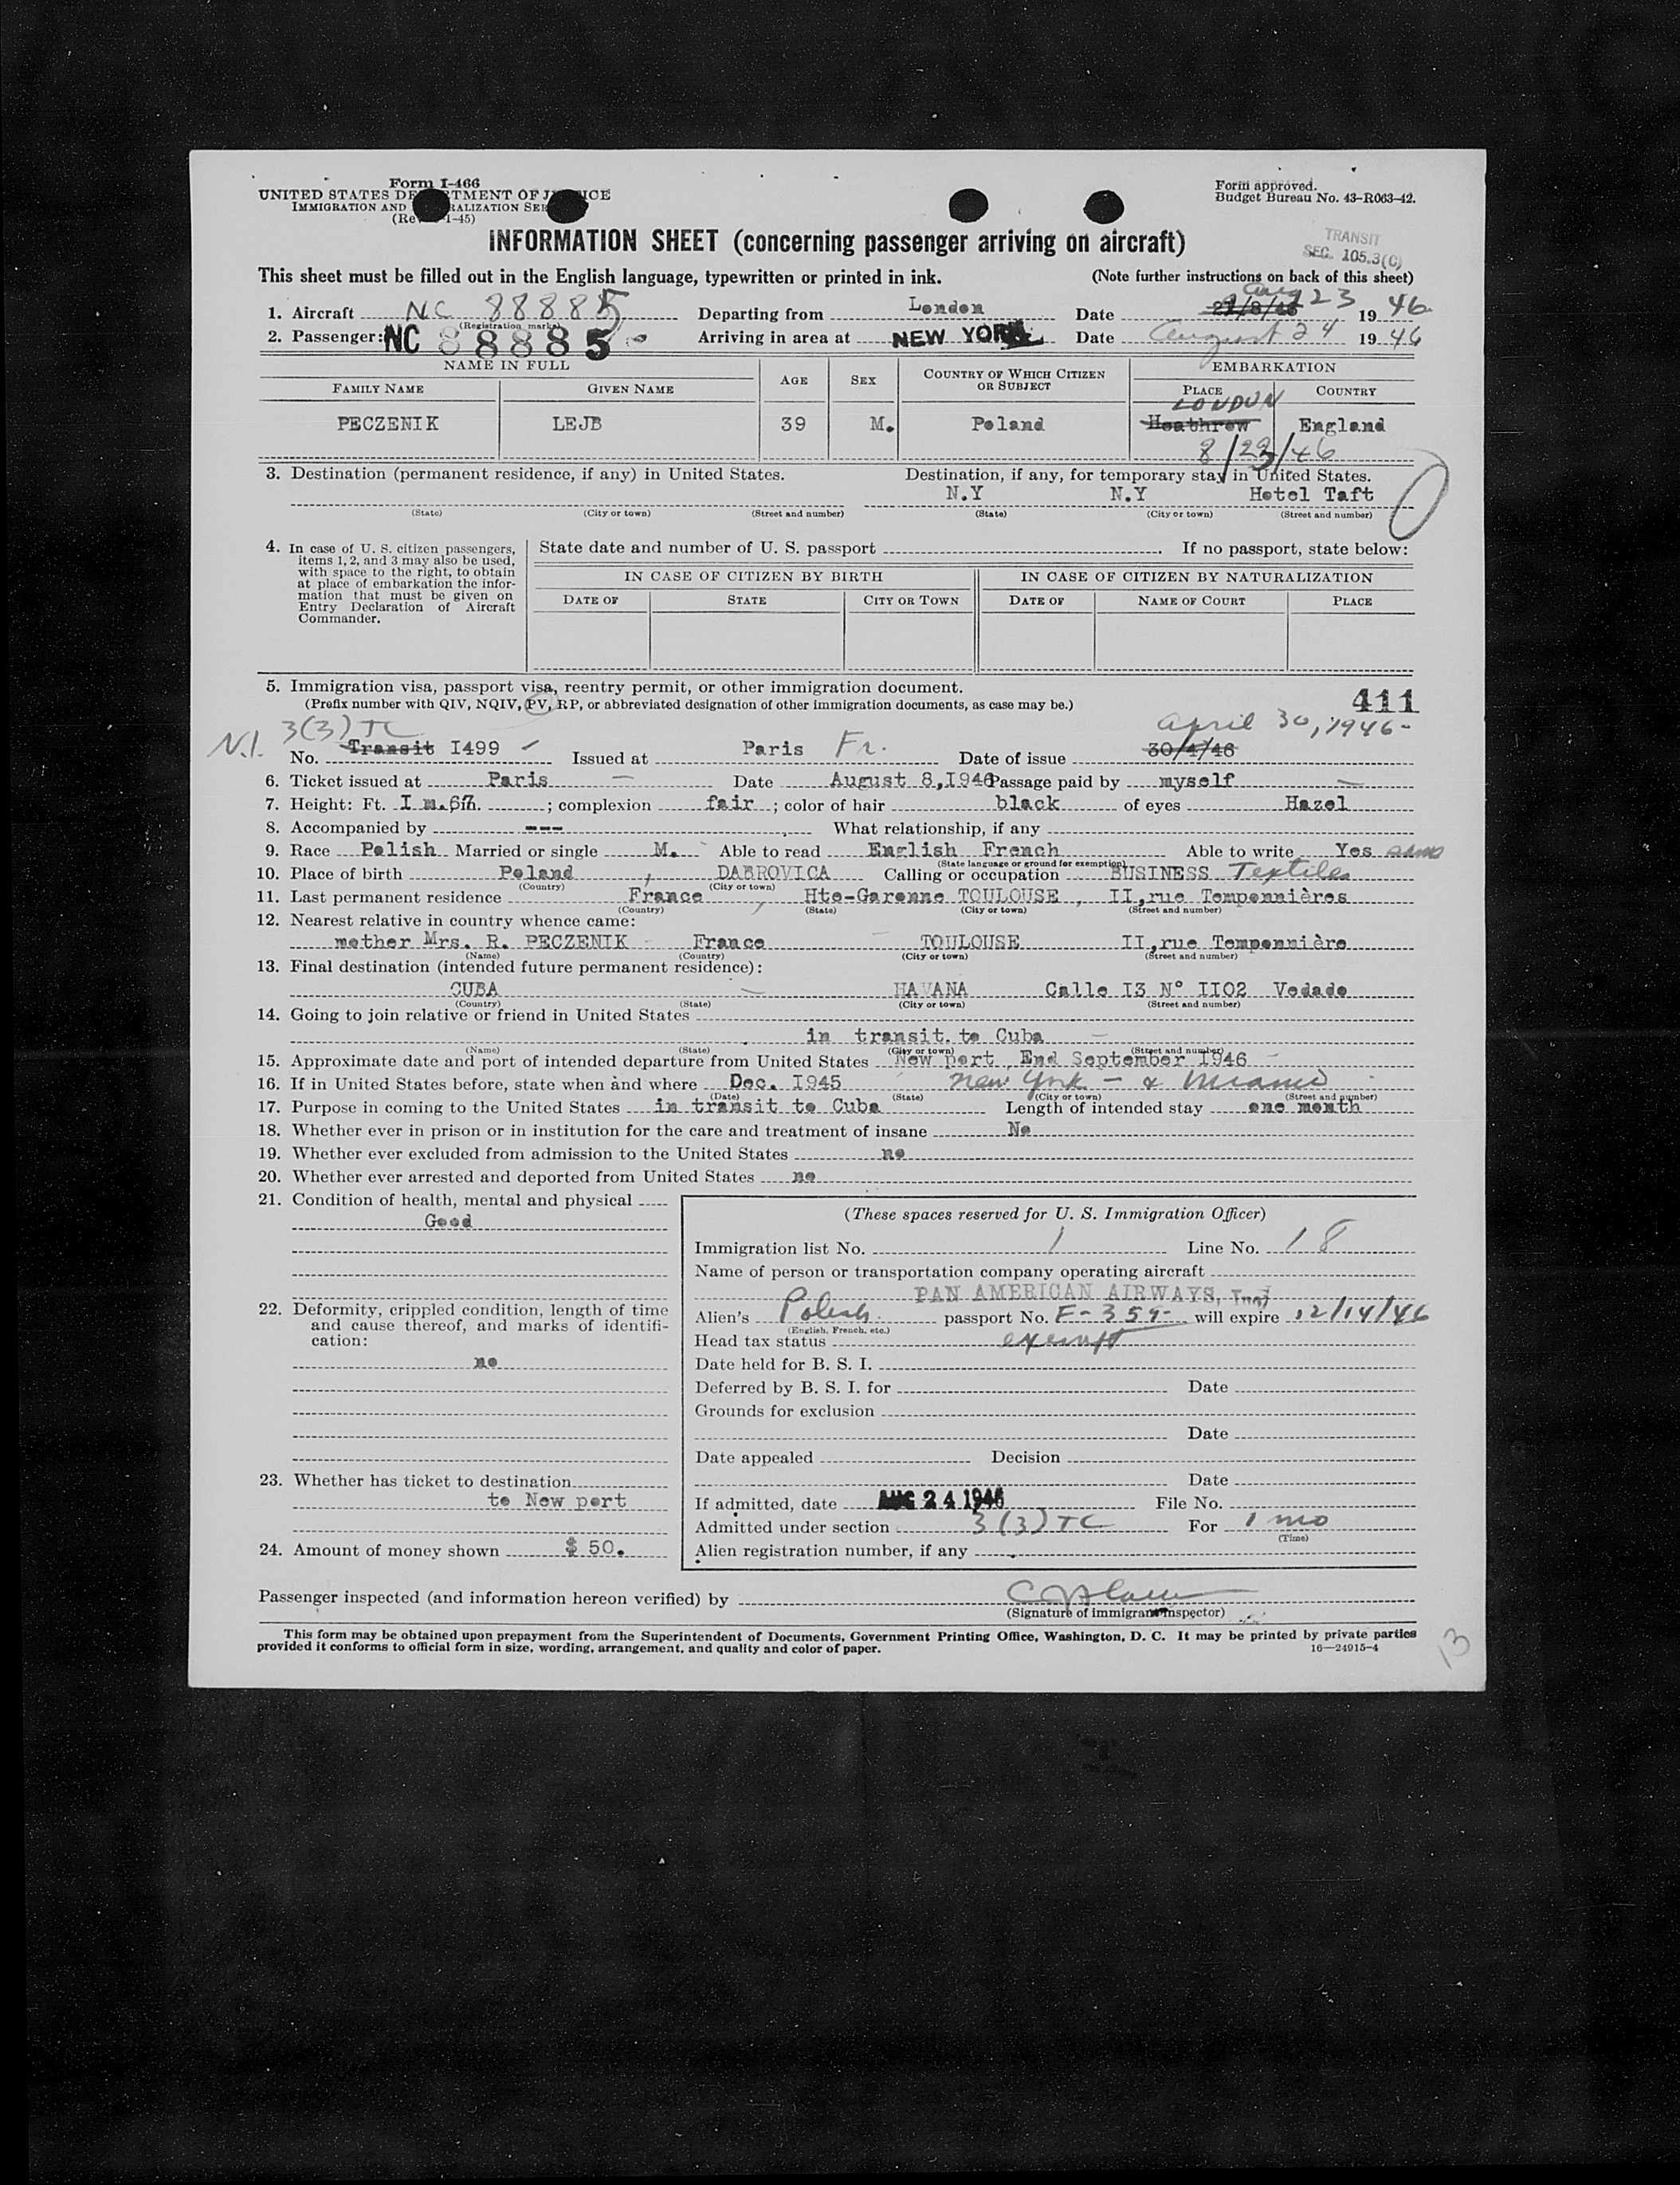 Form I-466
UNITED STATES DEPARTMENT OF JUSTICE
IMMIGRATION AND NATURALIZATION SER
(Re 1-45)
Form approved.
Budget Bureau No. 43-R063-42.
INFORMATION SHEET (concerning passenger arriving on aircraft)
TRANSIT
SEC. 105.3(C)
This sheet must be filled out in the English language, typewritten or printed in ink. (Note further instructions on back of this sheet)
1. Aircraft NC 88885 Departing from London Date Aug 23 19 46
(Registration marks)
2. Passenger: NC 88885 Arriving in area at NEW YORK Date August 24 19 46
NAME IN FULL AGE SEX COUNTRY OF WHICH CITIZEN OR SUBJECT EMBARKATION
FAMILY NAME GIVEN NAME PLACE COUNTRY
LONDON
PECZENIK LEJB 39 M. Poland Heathrow England
8/23/46
3. Destination (permanent residence, if any) in United States. Destination, if any, for temporary stay in United States.
N.Y N.Y Hotel Taft
(State) (City or town) (Street and number) (State) (City or town) (Street and number)
4. In case of U. S. citizen passengers, items 1, 2, and 3 may also be used, with space to the right, to obtain at place of embarkation the information that must be given on Entry Declaration of Aircraft Commander.
State date and number of U. S. passport . If no passport, state below:
IN CASE OF CITIZEN BY BIRTH IN CASE OF CITIZEN BY NATURALIZATION
DATE OF STATE CITY OR TOWN DATE OF NAME OF COURT PLACE
5. Immigration visa, passport visa, reentry permit, or other immigration document. 411
(Prefix number with QIV, NQIV, PV, RP, or abbreviated designation of other immigration documents, as case may be.)
N.I. 3(3) TC April 30, 1946-
No. Transit I499 Issued at Paris Fr. Date of issue 30/4/46
6. Ticket issued at Paris Date August 8,1946 Passage paid by myself
7. Height: Ft. I m.67 In. ; complexion fair ; color of hair black of eyes Hazel
8. Accompanied by --- What relationship, if any
9. Race Polish Married or single M. Able to read English French Able to write Yes same
(State language or ground for exemption)
10. Place of birth Poland , DABROVICA Calling or occupation BUSINESS Textiles
(Country) (City or town)
11. Last permanent residence France , Hte-Garonne TOULOUSE , II,rue Temponnières
(Country) (State) (City or town) (Street and number)
12. Nearest relative in country whence came:
mother Mrs. R. PECZENIK France TOULOUSE II,rue Temponnière
(Name) (Country) (City or town) (Street and number)
13. Final destination (intended future permanent residence):
CUBA HAVANA Calle I3 N° II02 Vedado
(Country) (State) (City or town) (Street and number)
14. Going to join relative or friend in United States
in transit. to Cuba
(Name) (State) (City or town) (Street and number)
15. Approximate date and port of intended departure from United States New port , End September 1946
16. If in United States before, state when and where Dec. I945 New York - & Miami
(Date) (State) (City or town) (Street and number)
17. Purpose in coming to the United States in transit to Cuba Length of intended stay one month
18. Whether ever in prison or in institution for the care and treatment of insane No
19. Whether ever excluded from admission to the United States no
20. Whether ever arrested and deported from United States no
21. Condition of health, mental and physical
Good
22. Deformity, crippled condition, length of time and cause thereof, and marks of identification:
no
23. Whether has ticket to destination
to New port
24. Amount of money shown $ 50.
(These spaces reserved for U. S. Immigration Officer)
Immigration list No. 1 Line No. 18
Name of person or transportation company operating aircraft
PAN AMERICAN AIRWAYS, Inc
Alien's Polish passport No. F-359- will expire 12/14/46
(English, French, etc.)
Head tax status exempt
Date held for B. S. I.
Deferred by B. S. I. for Date
Grounds for exclusion
Date
Date appealed Decision
Date
If admitted, date AUG 24 1946 File No.
Admitted under section 3(3) TC For 1 mo
(Time)
Alien registration number, if any
Passenger inspected (and information hereon verified) by
(Signature of immigrant inspector)
This form may be obtained upon prepayment from the Superintendent of Documents, Government Printing Office, Washington, D. C. It may be printed by private parties
provided it conforms to official form in size, wording, arrangement, and quality and color of paper. 16—24915-4
13